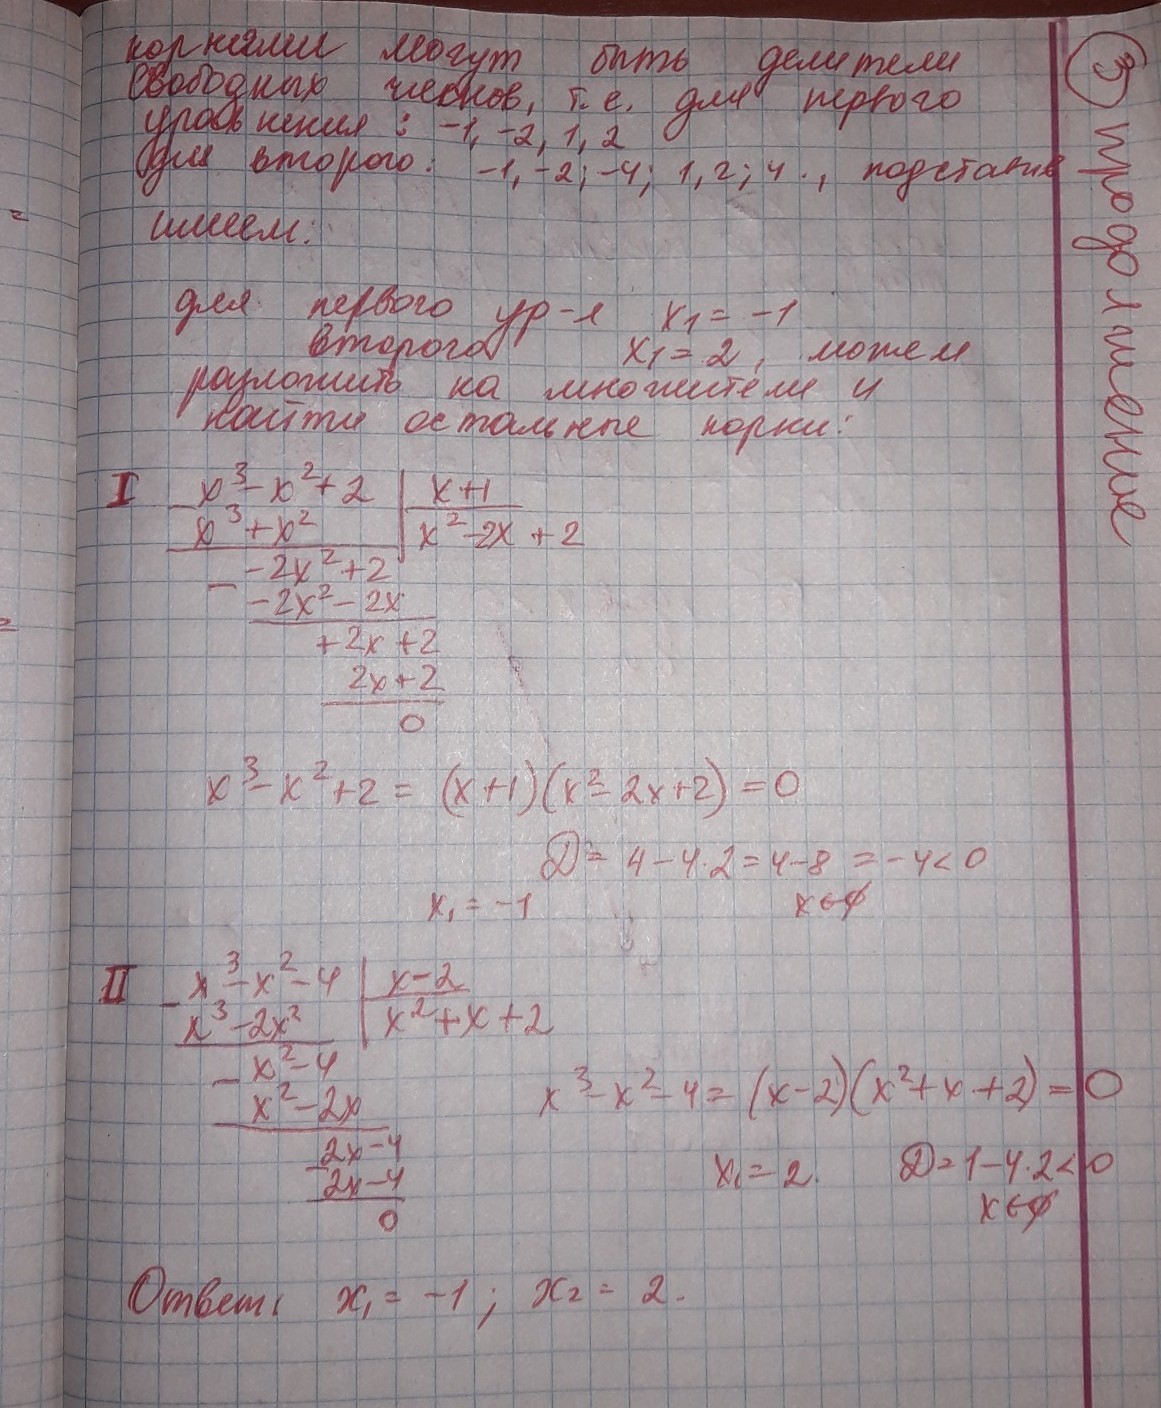 корнями могут быть делители
свободных членов, т.е. для первого
уравнения: -1, -2, 1, 2
для второго: -1, -2; -4; 1, 2; 4., подставив
ишем:
для первого ур-я x₁ = -1
второго x₁ = 2, можем
разложить на множители и
найти остальные корни:
I x³ - x² + 2 | x+1
x³ + x² | x² - 2x + 2
- -2x² + 2
-2x² - 2x
+2x + 2
2x + 2
0
x³ - x² + 2 = (x+1)(x² - 2x + 2) = 0
D = 4 - 4·2 = 4 - 8 = -4 < 0
x₁ = -1 x ∈ ∅
II - x³ - x² - 4 | x - 2
x³ - 2x² | x² + x + 2
- x² - 4
x² - 2x
- 2x - 4
2x - 4
0
x³ - x² - 4 = (x-2)(x² + x + 2) = 0
x₁ = 2. D = 1 - 4·2 < 0
x ∈ ∅
Ответ: x₁ = -1; x₂ = 2.
③ продолжение